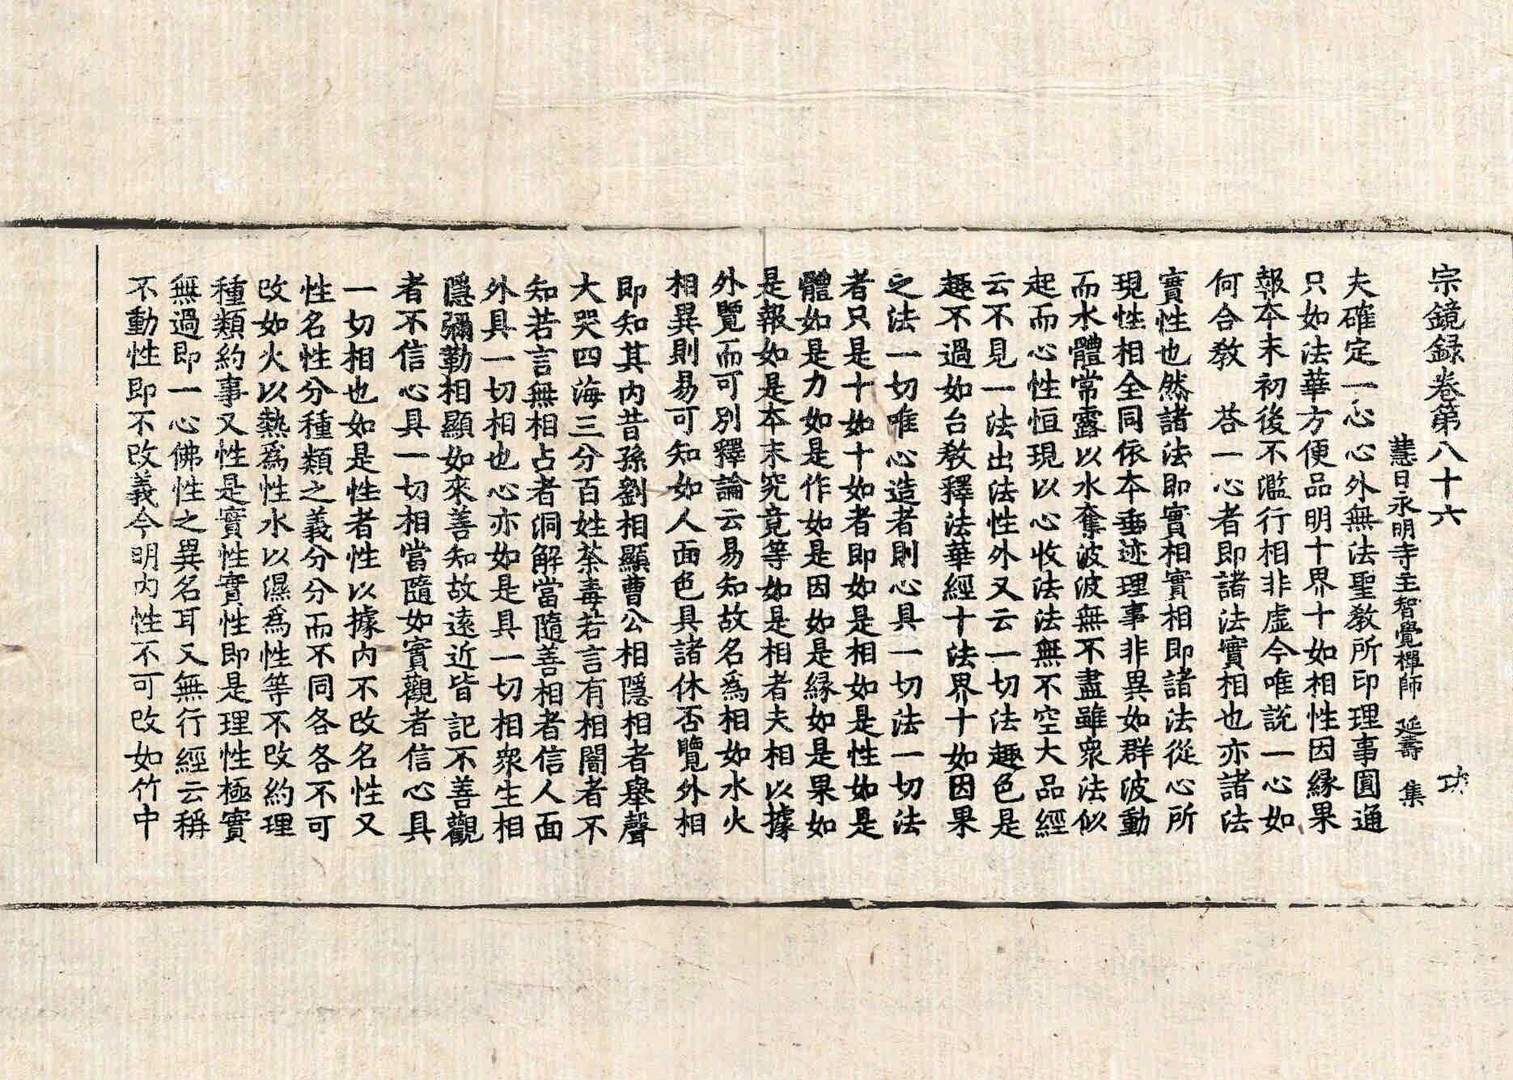 宗鏡錄卷第八十六 功
慧日永明寺主智覺禪師 延壽 集
夫確定一心心外無法聖教所印理事圓通
只如法華方便品明十界十如相性因緣果
報本末初後不濫行相非虛今唯說一心如
何合教 荅一心者即諸法實相也亦諸法
實性也然諸法即實相實相即諸法從心所
現性相全同依本垂迹理事非異如群波動
而水體常露以水奪波波無不盡雖衆法似
起而心性恒現以心收法法無不空大品經
云不見一法出法性外又云一切法趣色是
趣不過如台教釋法華經十法界十如因果
之法一切唯心造者則心具一切法一切法
者只是十如十如者即如是相如是性如是
體如是力如是作如是因如是緣如是果如
是報如是本末究竟等如是相者夫相以據
外覽而可別釋論云易知故名爲相如水火
相異則易可知如人面色具諸休否覽外相
即知其内昔孫劉相顯曹公相隱相者舉聲
大哭四海三分百姓荼毒若言有相闇者不
知若言無相占者洞解當隨善相者信人面
外具一切相也心亦如是具一切相衆生相
隱彌勒相顯如來善知故遠近皆記不善觀
者不信心具一切相當隨如實觀者信心具
一切相也如是性者性以據内不改名性又
性名性分種類之義分分而不同各各不可
改如火以熱爲性水以濕爲性等不改約理
種類約事又性是實性實性即是理性極實
無過即一心佛性之異名耳又無行經云稱
不動性即不改義今明内性不可改如竹中